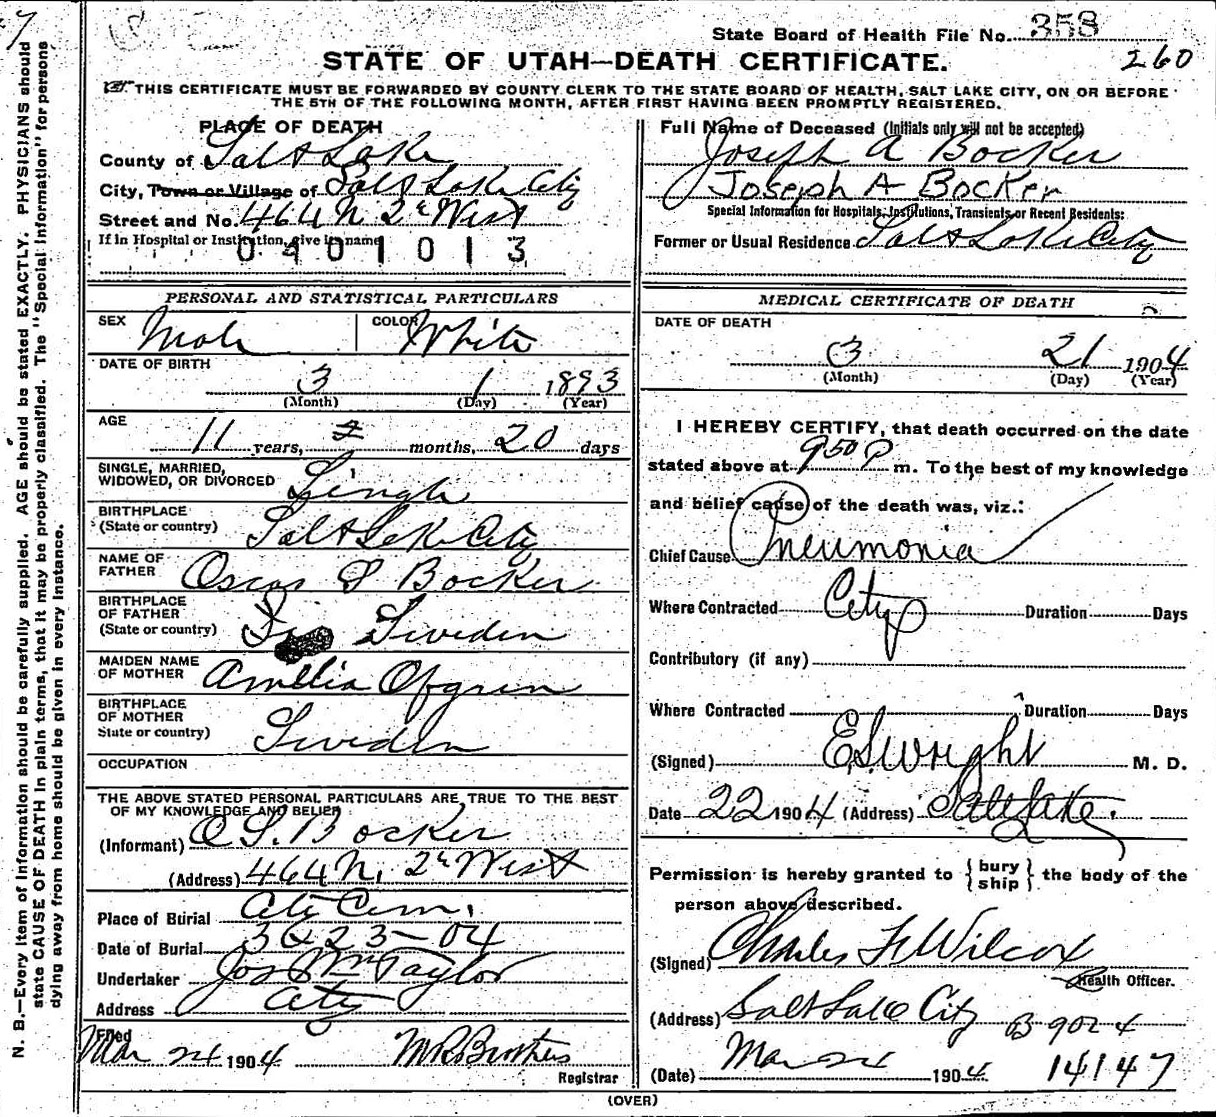 7
State Board of Health File No. 358
STATE OF UTAH—DEATH CERTIFICATE.
260
THIS CERTIFICATE MUST BE FORWARDED BY COUNTY CLERK TO THE STATE BOARD OF HEALTH, SALT LAKE CITY, ON OR BEFORE
THE 5TH OF THE FOLLOWING MONTH, AFTER FIRST HAVING BEEN PROMPTLY REGISTERED.
N. B.—Every item of information should be carefully supplied. AGE should be stated EXACTLY. PHYSICIANS should
state CAUSE OF DEATH in plain terms, that it may be properly classified. The "Special Information" for persons
dying away from home should be given in every instance.
PLACE OF DEATH
County of Salt Lake
City, Town or Village of Salt Lake City
Street and No. 464 N 2d West
If in Hospital or Institution, give its name
0401013
PERSONAL AND STATISTICAL PARTICULARS
SEX Male COLOR White
DATE OF BIRTH
3 1 1893
(Month) (Day) (Year)
AGE
11 years, months, 20 days
SINGLE, MARRIED,
WIDOWED, OR DIVORCED Single
BIRTHPLACE
(State or country) Salt Lake City
NAME OF
FATHER Oscar S Bocker
BIRTHPLACE
OF FATHER
(State or country) Sweden
MAIDEN NAME
OF MOTHER Amelia Ofgren
BIRTHPLACE
OF MOTHER
State or country) Sweden
OCCUPATION
THE ABOVE STATED PERSONAL PARTICULARS ARE TRUE TO THE BEST
OF MY KNOWLEDGE AND BELIEF
(Informant) O S Bocker
(Address) 464 N. 2d West
Place of Burial City Cem.
Date of Burial 3 23-04
Undertaker Jos Wm Taylor
Address City
Filed
Mar 24 1904 Registrar
Full Name of Deceased (Initials only will not be accepted)
Joseph A Bocker
Joseph A Bocker
Special Information for Hospitals, Institutions, Transients or Recent Residents:
Former or Usual Residence Salt Lake City
MEDICAL CERTIFICATE OF DEATH
DATE OF DEATH
3 21 1904
(Month) (Day) (Year)
I HEREBY CERTIFY, that death occurred on the date
stated above at 9 50 P m. To the best of my knowledge
and belief cause of the death was, viz.:
Chief Cause Pneumonia
Where Contracted City Duration Days
Contributory (if any)
Where Contracted Duration Days
(Signed) E.S. Wright M. D.
Date 22 1904 (Address) Salt Lake.
Permission is hereby granted to { bury
ship } the body of the
person above described.
(Signed) Charles F Wilcox
Health Officer.
(Address) Salt Lake City B 9024
(Date) Mar 24 1904. 14147
(OVER)